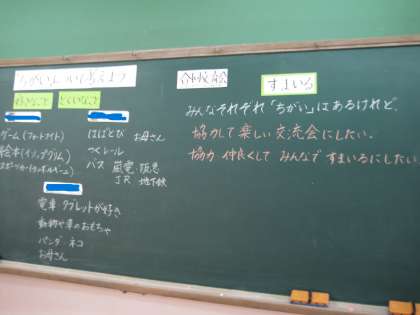 ちがいについて考えよう
好きなこと
とくいなこと
ゲーム(フォートナイト)
絵本(イソップ、グリム)
スポーツカー(ランボルギーニ)
はばとび お母さん
つくレール
バス 嵐電 阪急
JR 地下鉄
電車 タブレットが好き
動物や車のおもちゃ
パンダ ネコ
お母さん
合同交流会
すまいる
みんなそれぞれ「ちがい」はあるけれど、
協力して楽しい交流会にしたい。
協力 仲良くして みんなで すまいるにしたい